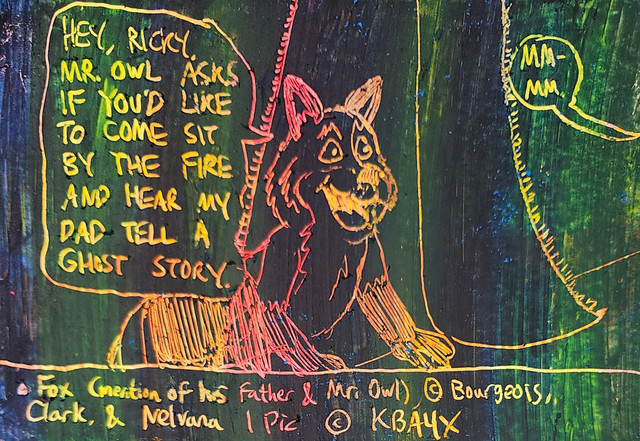 HEY, RICKY,
MR. OWL ASKS
IF YOU'D LIKE
TO COME SIT
BY THE FIRE
AND HEAR MY
DAD TELL A
GHOST STORY.
MM-
MM.
Fox (mention of his Father & Mr. Owl) © Bourgeois,
Clark, & Nelvana | Pic © KBA4X